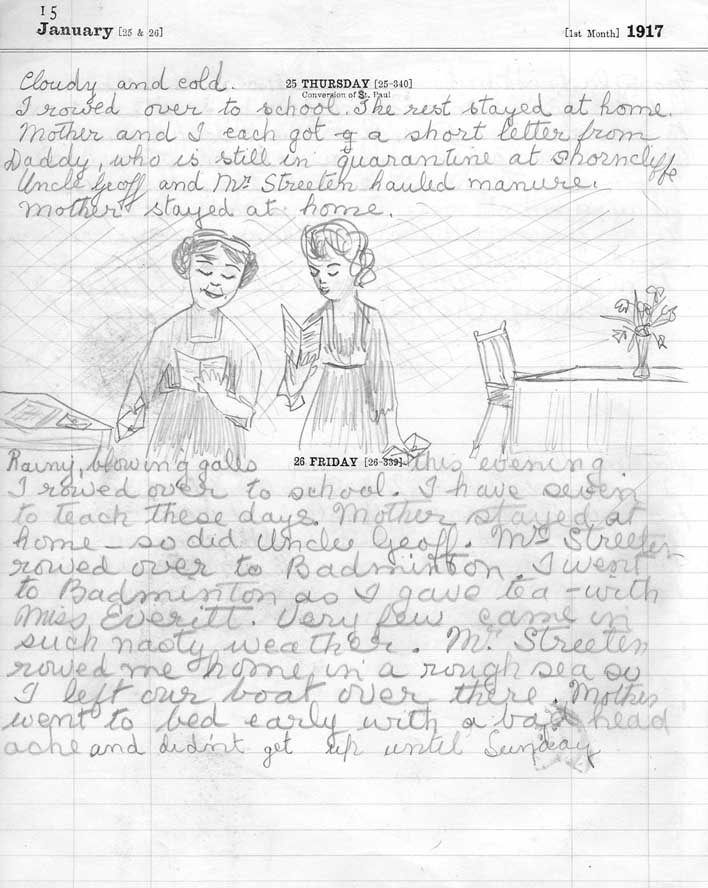 15
January [25 & 26] [1st Month] 1917
Cloudy and cold. 25 THURSDAY [25-340]
Conversion of St. Paul
I rowed over to school. The rest stayed at home.
Mother and I each got a short letter from
Daddy, who is still in quarantine at Shorncliffe
Uncle Geoff and Mr. Streeten hauled manure.
Mother stayed at home.
Rainy, blowing galls 26 FRIDAY [26-339] this evening
I rowed over to school. I have seven
to teach these days. Mother stayed at
home - so did Uncle Geoff. Mr. Streeten
rowed over to Badminton. I went
to Badminton as I gave tea - with
Miss Everitt. Very few came in
such nasty weather. Mr. Streeten
rowed me home in a rough sea so
I left our boat over there. Mother
went to bed early with a bad head
ache and didn't get up until Sunday